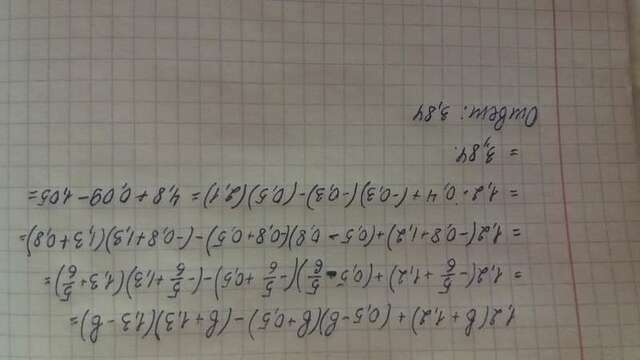 1,2(в+1,2)+(0,5-в)(в+0,5)-(в+1,3)(1,3-в)=
=1,2(-5/6+1,2)+(0,5-5/6)(-5/6+0,5)-(-5/6+1,3)(1,3+5/6)=
=1,2(-0,8+1,2)+(0,5-0,8)(-0,8+0,5)-(-0,8+1,3)(1,3+0,8)=
=1,2·0,4+(-0,3)(-0,3)-(0,5)(2,1)=4,8+0,09-1,05=
=3,84.
Ответ: 3,84